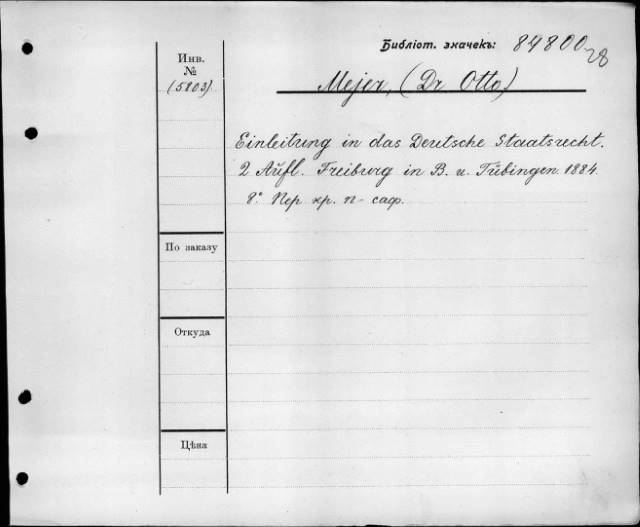 Библіот. значекъ: 84800
28
Инв.
№
(5803)
Mejer, (Dr Otto)
Einleitung in das Deutsche Staatsrecht.
2 Aufl. Freiburg in B. u. Tübingen 1884.
8° Пер. хр. п- саф.
По заказу
Откуда
Цѣна